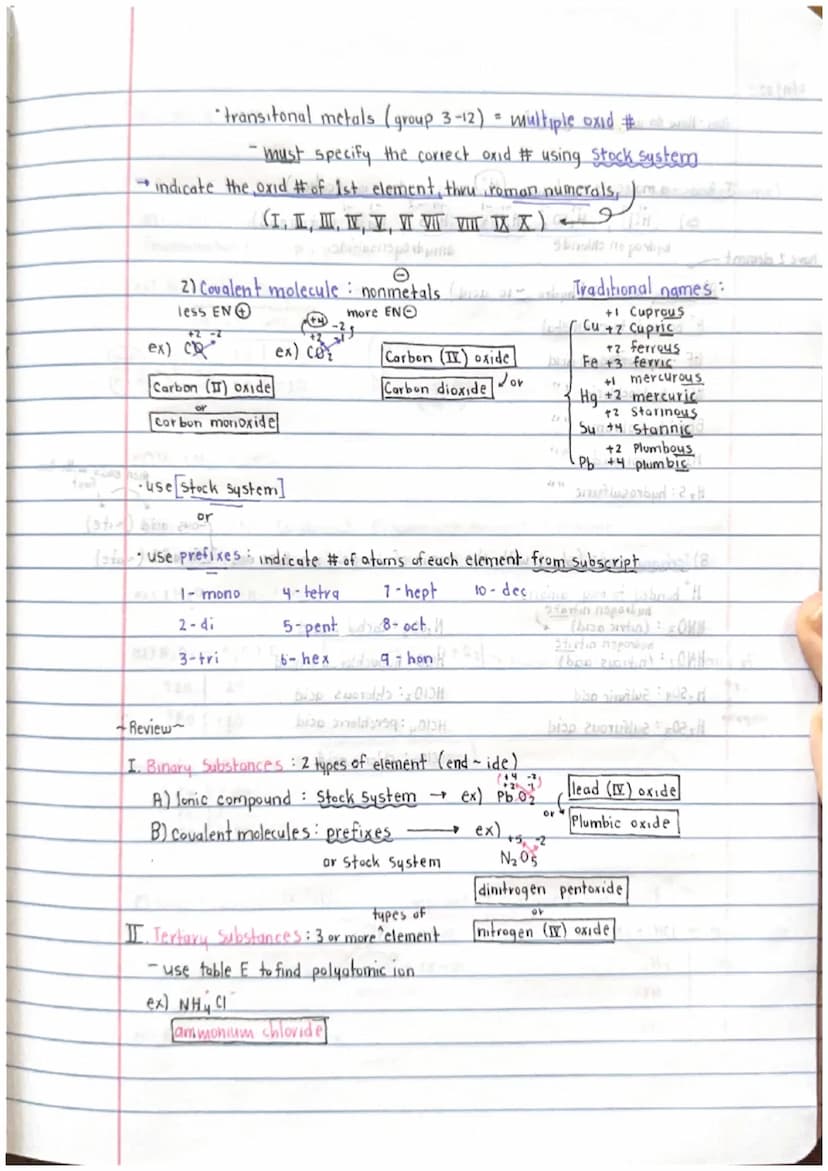 · transitonal metals (group 3-12) = multiple oxid #
- must specify the correct oxid # using Stock system
→ indicate the oxid # of 1st element, thru roman numerals,
(I, II, III, IV, V, VI VII VIII IX X)
2) Covalent molecule : nonmetals
less EN ⊕ more EN ⊖
ex) CO +2 -2
ex) CO2 +4 -2
Carbon (II) oxide
or
Carbon monoxide
Carbon (IV) oxide
or
Carbon dioxide
Traditional names :
+1 Cuprous
Cu +2 Cupric
+2 ferrous
Fe +3 ferric
+1 mercurous
Hg +2 mercuric
+2 Stannous
Sn +4 Stannic
+2 Plumbous
Pb +4 plumbic
· use [stock system]
or
· use prefixes : indicate # of atoms of each element from subscript
1- mono 4-tetra 7-hept 10- dec
2-di 5-pent 8-oct
3-tri 6-hex 9-non
~Review~
I. Binary Substances : 2 types of element (end ~ ide)
A) Ionic compound : Stock System → ex) PbO2 lead (IV) oxide
or Plumbic oxide
B) Covalent molecules : prefixes → ex) +5 -2
or Stock system N2O5
dinitrogen pentoxide
or
nitrogen (IV) oxide
II. Tertary Substances : 3 or more ^types of element
- use table E to find polyatomic ion
ex) NH4Cl
ammonium chloride